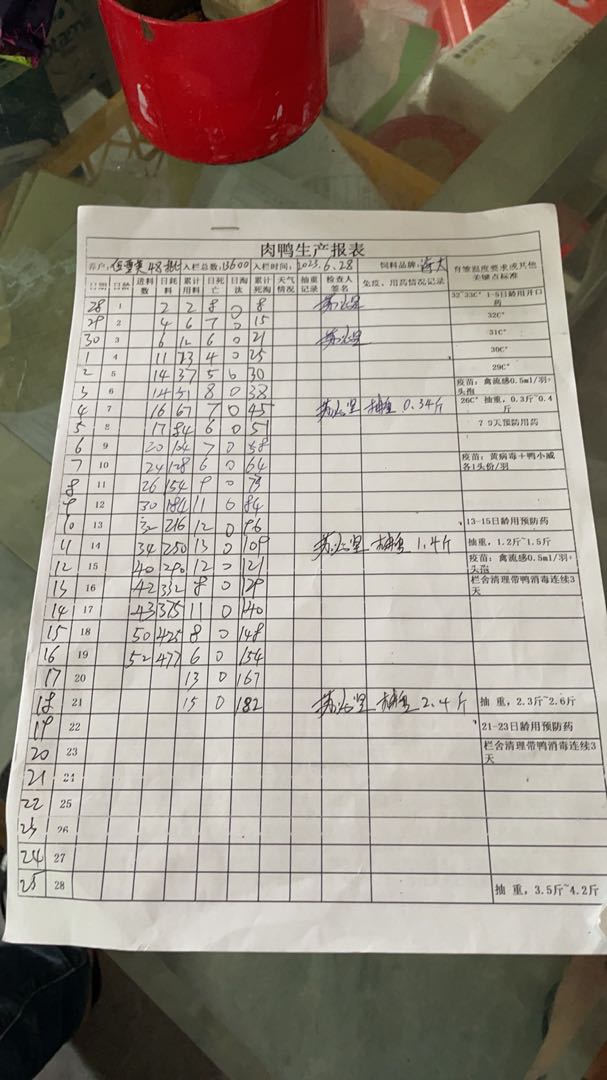 肉鸭生产报表
养户: 48批 入栏总数: 13600 入栏时间: 2023.6.28 饲料品牌: 海大 育雏温度要求或其他关键点标准
日期 日龄 进料数 日耗料 累计用料 日死亡 日淘汰 累计死淘 天气情况 抽重记录 检查人签名 免疫、用药情况记录
28 1 2 2 8 0 8 32~33C° 1-5日龄用开口药
29 2 4 6 7 0 15 32C°
30 3 6 12 6 0 21 31C°
1 4 11 23 4 0 25 30C°
2 5 14 37 5 0 30 29C°
3 6 14 51 8 0 38 疫苗：禽流感0.5ml/羽+头孢
4 7 16 67 7 0 45 抽重 0.34斤 26C° 抽重，0.3斤~0.4斤
5 8 17 84 6 0 51 7-9天预防用药
6 9 20 104 7 0 58
7 10 24 128 6 0 64 疫苗：黄病毒＋鸭小威各1头份/羽
8 11 26 154 9 0 73
9 12 30 184 11 0 84
10 13 32 216 12 0 96 13-15日龄用预防药
11 14 34 250 13 0 109 抽重 1.4斤 抽重，1.2斤~1.5斤
12 15 40 290 12 0 121 疫苗：禽流感0.5ml/羽+头孢
13 16 42 332 8 0 129 栏舍清理带鸭消毒连续3天
14 17 43 375 11 0 140
15 18 50 425 8 0 148
16 19 52 477 6 0 154
17 20 13 0 167
18 21 15 0 182 抽重 2.4斤 抽 重，2.3斤~2.6斤
19 22 21-23日龄用预防药
20 23 栏舍清理带鸭消毒连续3天
21 24
22 25
23 26
24 27
25 28 抽 重，3.5斤~4.2斤